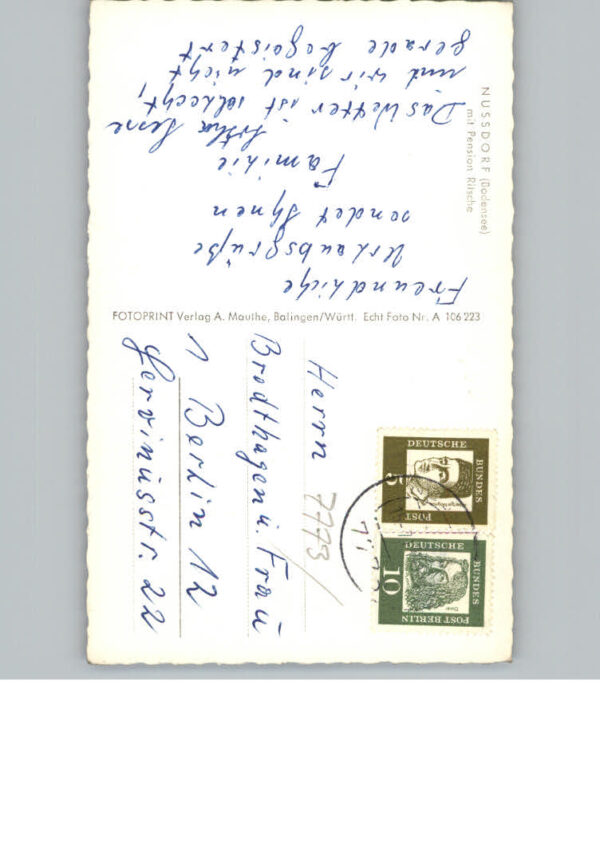 NUSSDORF (Bodensee)
mit Pension Ritsche
Freundliche
Urlaubsgrüße
sendet Ihnen
Familie
Das Wetter ist schlecht,
und wir sind nicht
gerade begeistert
FOTOPRINT Verlag A. Mauthe, Balingen/Württ. Echt Foto Nr. A 106 223
DEUTSCHE
BUNDES
POST
5
DEUTSCHE
BUNDES
POST BERLIN
10
Dürer
7773/
Herrn
Brodthagen u. Frau
1 Berlin 12
Gervinusstr. 22